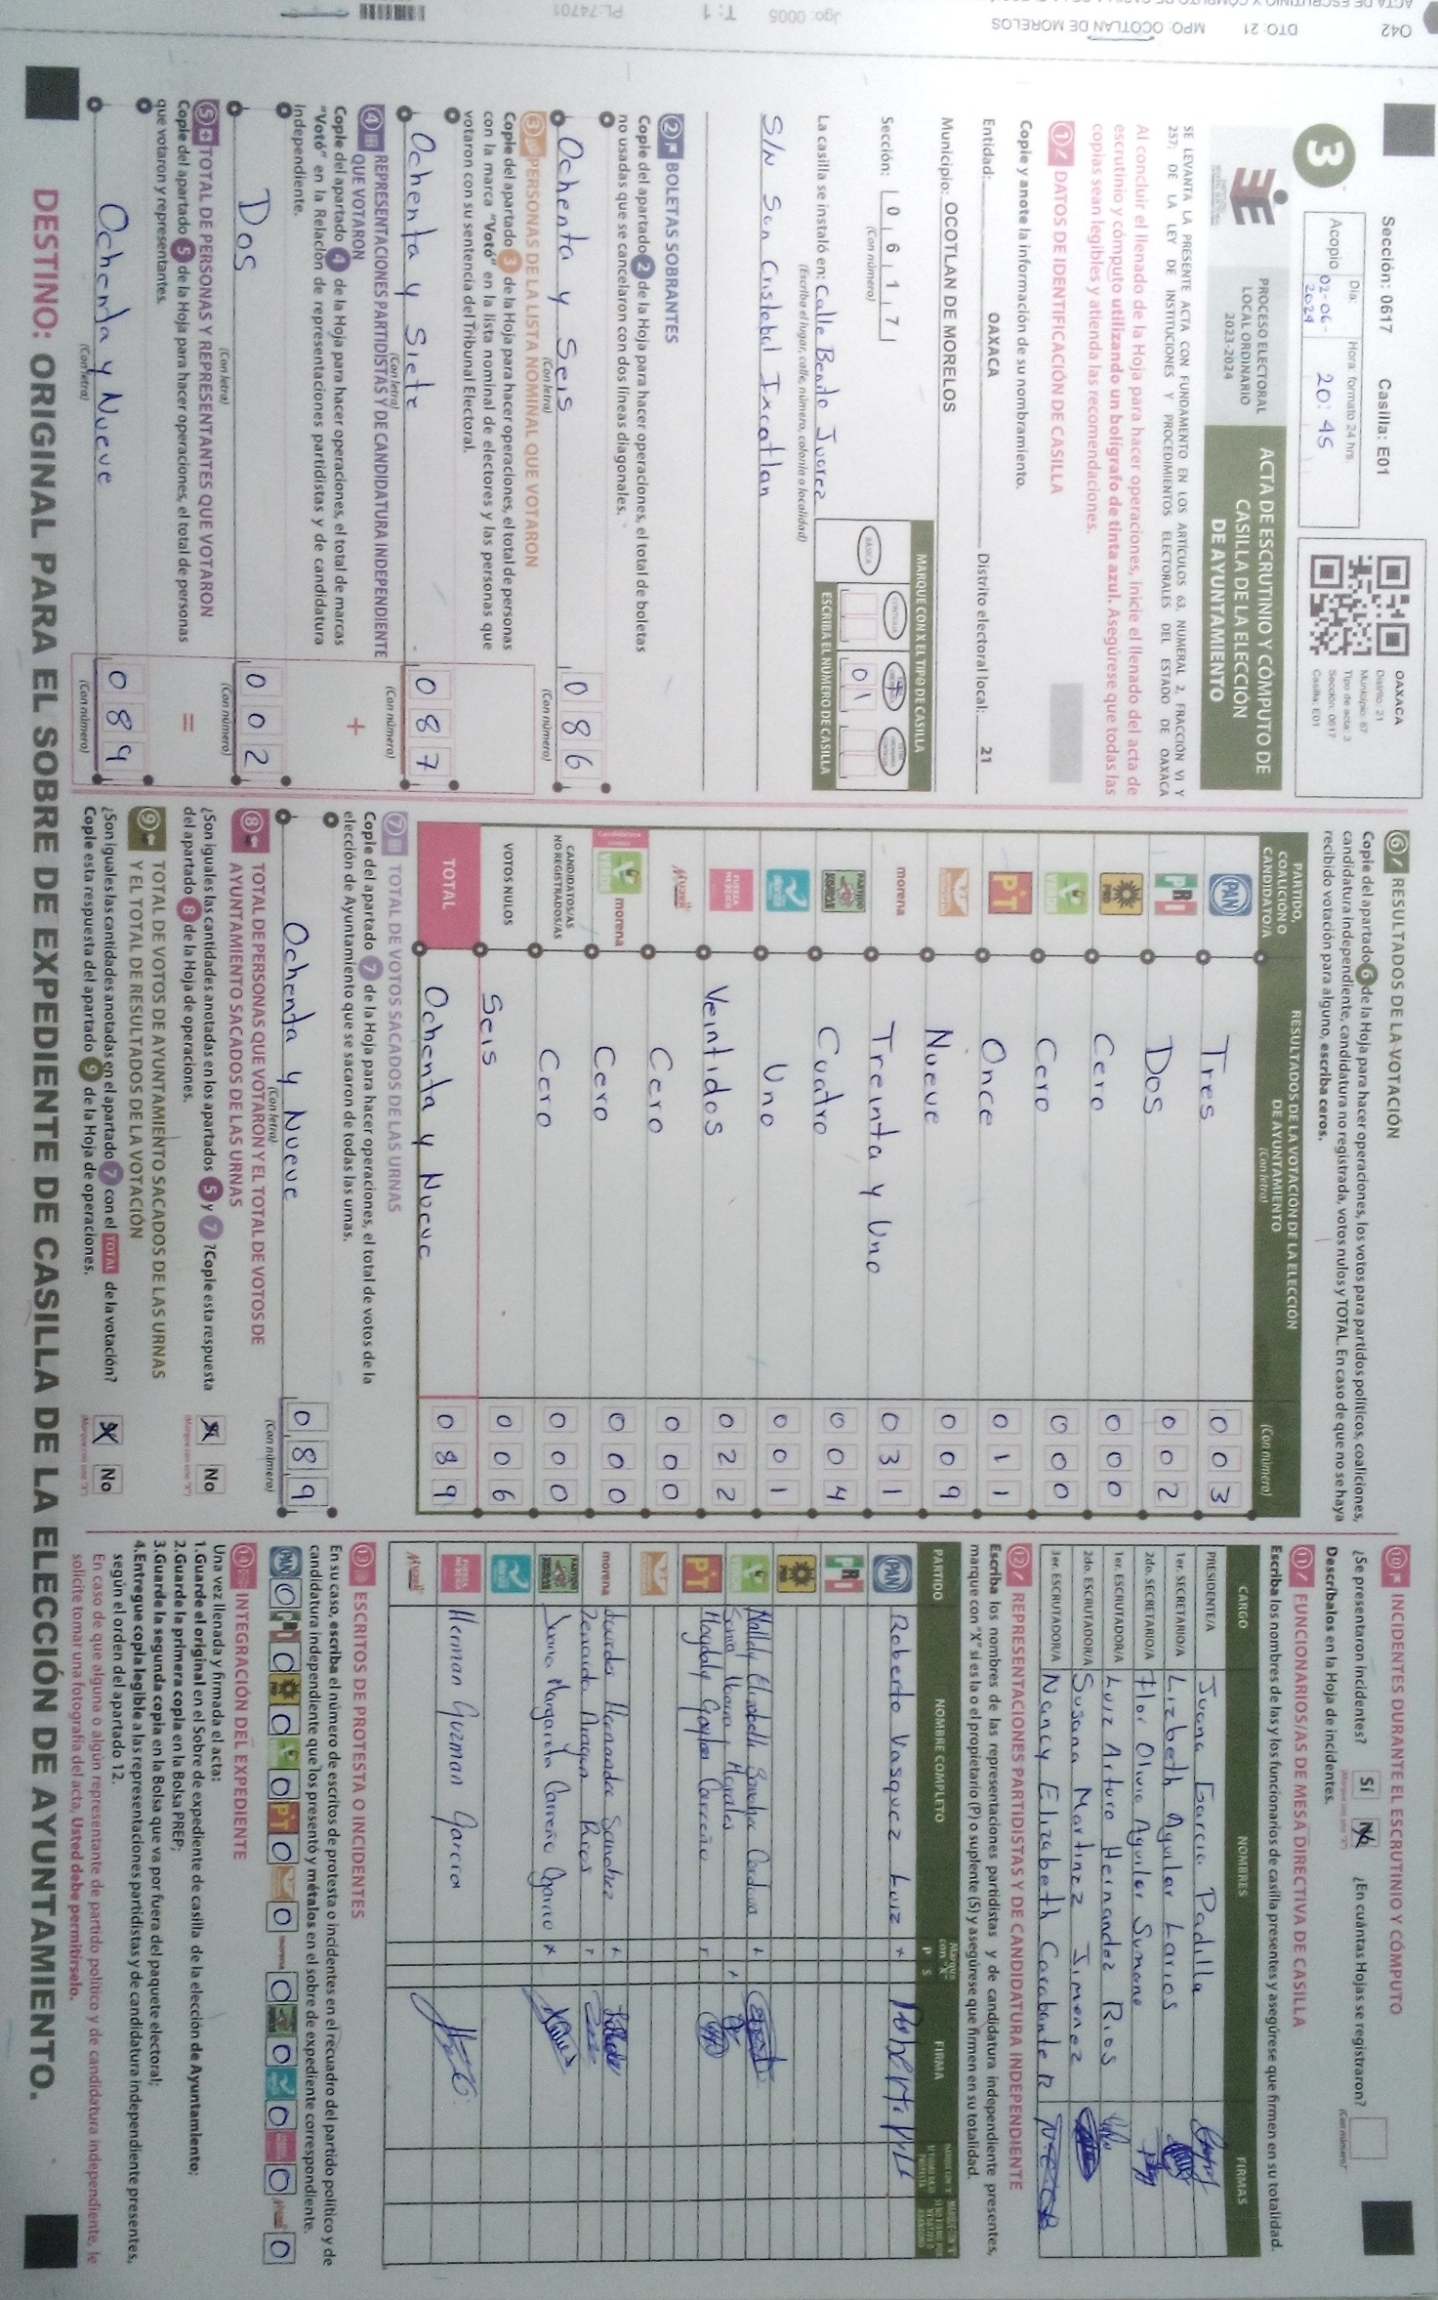 Sección: 0617 Casilla: E01
3
Día: Hora: formato 24 hrs
Acopio 02-06-2024 20:45
OAXACA
Distrito: 21
Municipio: 67
Tipo de acta: 3
Sección: 0617
Casilla: E01
PROCESO ELECTORAL
LOCAL ORDINARIO
2023-2024
ACTA DE ESCRUTINIO Y CÓMPUTO DE
CASILLA DE LA ELECCIÓN
DE AYUNTAMIENTO
SE LEVANTA LA PRESENTE ACTA CON FUNDAMENTO EN LOS ARTÍCULOS 63, NUMERAL 2, FRACCIÓN VI Y
257; DE LA LEY DE INSTITUCIONES Y PROCEDIMIENTOS ELECTORALES DEL ESTADO DE OAXACA
Al concluir el llenado de la Hoja para hacer operaciones, inicie el llenado del acta de
escrutinio y cómputo utilizando un bolígrafo de tinta azul. Asegúrese que todas las
copias sean legibles y atienda las recomendaciones.
1 DATOS DE IDENTIFICACIÓN DE CASILLA
Copie y anote la información de su nombramiento.
Entidad: OAXACA Distrito electoral local: 21
Municipio: OCOTLAN DE MORELOS
Sección: 0 6 1 7
(Con número)
MARQUE CON X EL TIPO DE CASILLA
BÁSICA
01
ESCRIBA EL NÚMERO DE CASILLA
La casilla se instaló en: Calle Benito Juarez
(Escriba el lugar, calle, número, colonia o localidad)
S/N San Cristobal Ixcatlan
2 BOLETAS SOBRANTES
Copie del apartado 2 de la Hoja para hacer operaciones, el total de boletas
no usadas que se cancelaron con dos líneas diagonales.
Ochenta y Seis 0 8 6
(Con letra) (Con número)
3 PERSONAS DE LA LISTA NOMINAL QUE VOTARON
Copie del apartado 3 de la Hoja para hacer operaciones, el total de personas
con la marca "Votó" en la lista nominal de electores y las personas que
votaron con su sentencia del Tribunal Electoral.
Ochenta y Siete 0 8 7
(Con letra) (Con número)
4 REPRESENTACIONES PARTIDISTAS Y DE CANDIDATURA INDEPENDIENTE
QUE VOTARON
Copie del apartado 4 de la Hoja para hacer operaciones, el total de marcas
"Votó" en la Relación de representaciones partidistas y de candidatura
independiente.
+
Dos 0 0 2
(Con letra) (Con número)
5 TOTAL DE PERSONAS Y REPRESENTANTES QUE VOTARON
Copie del apartado 5 de la Hoja para hacer operaciones, el total de personas
que votaron y representantes.
=
Ochenta y Nueve 0 8 9
(Con letra) (Con número)
6 RESULTADOS DE LA VOTACIÓN
Copie del apartado 6 de la Hoja para hacer operaciones, los votos para partidos políticos, coaliciones,
candidatura independiente, candidatura no registrada, votos nulos y TOTAL. En caso de que no se haya
recibido votación para alguno, escriba ceros.
PARTIDO, COALICION O CANDIDATO/A
RESULTADOS DE LA VOTACIÓN DE LA ELECCIÓN DE AYUNTAMIENTO
(Con letra) (Con número)
PAN Tres 0 0 3
PRI Dos 0 0 2
PRD Cero 0 0 0
VERDE Cero 0 0 0
PT Once 0 1 1
Nueve 0 0 9
morena Treinta y Uno 0 3 1
Cuatro 0 0 4
Uno 0 0 1
FUERZA MEXICO Veintidos 0 2 2
Cero 0 0 0
VERDE morena Cero 0 0 0
CANDIDATOS/AS NO REGISTRADOS/AS Cero 0 0 0
VOTOS NULOS Seis 0 0 6
TOTAL Ochenta y Nueve 0 8 9
7 TOTAL DE VOTOS SACADOS DE LAS URNAS
Copie del apartado 7 de la Hoja para hacer operaciones, el total de votos de la
elección de Ayuntamiento que se sacaron de todas las urnas.
Ochenta y Nueve 0 8 9
(Con letra) (Con número)
8 TOTAL DE PERSONAS QUE VOTARON Y EL TOTAL DE VOTOS DE
AYUNTAMIENTO SACADOS DE LAS URNAS
¿Son iguales las cantidades anotadas en los apartados 5 y 7 ? Copie esta respuesta
del apartado 8 de la Hoja de operaciones.
Sí No
9 TOTAL DE VOTOS DE AYUNTAMIENTO SACADOS DE LAS URNAS
Y EL TOTAL DE RESULTADOS DE LA VOTACIÓN
¿Son iguales las cantidades anotadas en el apartado 7 con el TOTAL de la votación?
Copie esta respuesta del apartado 9 de la Hoja de operaciones.
Sí No
10 INCIDENTES DURANTE EL ESCRUTINIO Y CÓMPUTO
¿Se presentaron incidentes? Sí No ¿En cuántas Hojas se registraron?
Descríbalos en la Hoja de incidentes.
11 FUNCIONARIOS/AS DE MESA DIRECTIVA DE CASILLA
Escriba los nombres de las y los funcionarios de casilla presentes y asegúrese que firmen en su totalidad.
CARGO NOMBRES FIRMAS
PRESIDENTE/A Juana Garcia Padilla
1er. SECRETARIO/A Lizbeth Aguilar Larios
2do. SECRETARIO/A Flor Olivia Aguilar Sumano
1er. ESCRUTADOR/A Luiz Arturo Hernandez Rios
2do. ESCRUTADOR/A Susana Martinez Jimenez
3er. ESCRUTADOR/A Nancy Elizabeth Carabante R
12 REPRESENTACIONES PARTIDISTAS Y DE CANDIDATURA INDEPENDIENTE
Escriba los nombres de las representaciones partidistas y de candidatura independiente presentes,
marque con "X" si es la o el propietario (P) o suplente (S) y asegúrese que firmen en su totalidad.
PARTIDO NOMBRE COMPLETO Marque con "X" P S FIRMA
PAN Roberto Vasquez Luiz x
PRI
PRD
VERDE Elizabeth Sanchez Cardona
Morales
PT Magdaly Carreño
morena Lourdes Hernandez Sanchez
Aragon
Juana Margarita Carreño x
FUERZA MEXICO Herman Guzman Garcia
13 ESCRITOS DE PROTESTA O INCIDENTES
En su caso, escriba el número de escritos de protesta o incidentes en el recuadro del partido político y de
candidatura independiente que los presentó y métalos en el sobre de expediente correspondiente.
PAN 0 PRI 0 PRD 0 VERDE 0 PT 0 0 morena 0 0 0 0 0
14 INTEGRACIÓN DEL EXPEDIENTE
Una vez llenada y firmada el acta:
1.Guarde el original en el Sobre de expediente de casilla de la elección de Ayuntamiento;
2.Guarde la primera copia en la Bolsa PREP;
3.Guarde la segunda copia en la Bolsa que va por fuera del paquete electoral;
4.Entregue copia legible a las representaciones partidistas y de candidatura independiente presentes,
según el orden del apartado 12.
En caso de que alguna o algún representante de partido político y de candidatura independiente, le
solicite tomar una fotografía del acta, Usted debe permitírselo.
DESTINO: ORIGINAL PARA EL SOBRE DE EXPEDIENTE DE CASILLA DE LA ELECCIÓN DE AYUNTAMIENTO.
042 DTO: 21 MPO: OCOTLAN DE MORELOS
Jgo: 0005 T: 1 PL:74701